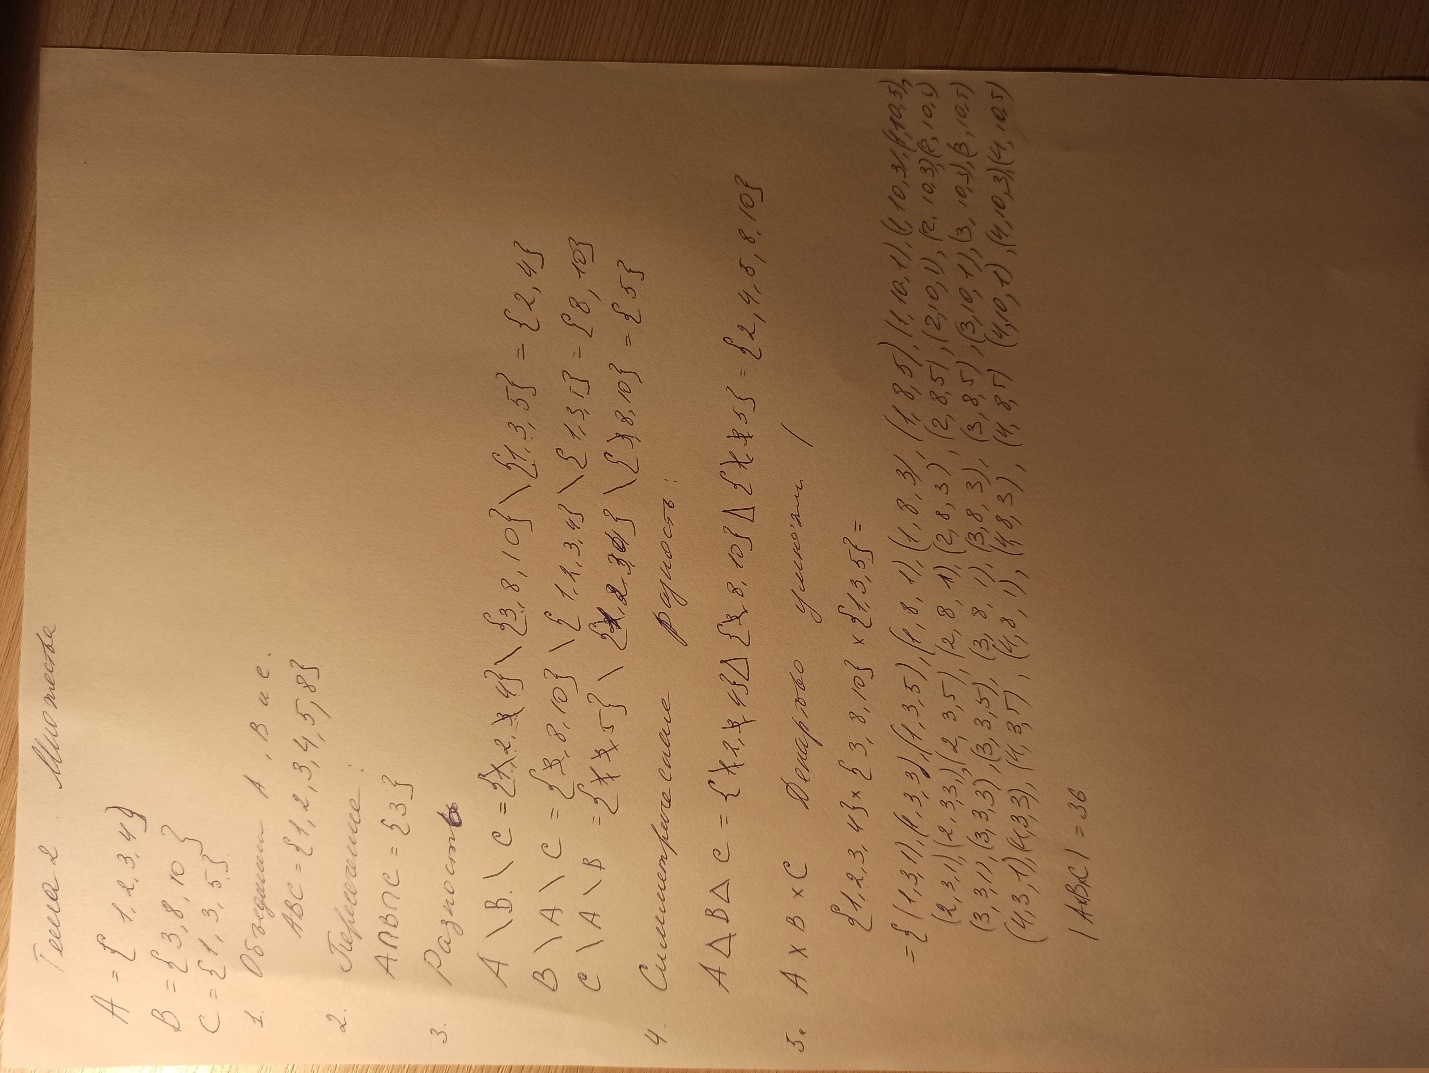 Тема 2. Множества
A = { 1, 2, 3, 4}
B = {3, 8, 10 }
C = {1, 3, 5}
1. Объединить A, B и C.
ABC = {1, 2, 3, 4, 5, 8}
2. Пересечение:
A∩B∩C = {3}
3. Разность
A \ B \ C = {1, 2, 3, 4} \ {3, 8, 10} \ {1, 3, 5} = {2, 4}
B \ A \ C = {3, 8, 10} \ {1, 2, 3, 4} \ {1, 3, 5} = {8, 10}
C \ A \ B = {1, 3, 5} \ {1, 2, 3, 4} \ {3, 8, 10} = {5}
4. Симметрические разность:
A △ B △ C = {1, 2, 3, 4} △ {3, 8, 10} △ {1, 3, 5} = {2, 4, 5, 8, 10}
5. A × B × C Декартово /
{1, 2, 3, 4} × {3, 8, 10} × {1, 3, 5} =
= { (1, 3, 1), (1, 3, 3), (1, 3, 5), (1, 8, 1), (1, 8, 3), (1, 8, 5), (1, 10, 1), (1, 10, 3), (1, 10, 5),
(2, 3, 1), (2, 3, 3), (2, 3, 5), (2, 8, 1), (2, 8, 3), (2, 8, 5), (2, 10, 1), (2, 10, 3)
(3, 3, 1), (3, 3, 3), (3, 3, 5), (3, 8, 1), (3, 8, 3), (3, 8, 5), (3, 10, 1), (3, 10, 3), (3, 10, 5)
(4, 3, 1), (4, 3, 3), (4, 3, 5), (4, 8, 1), (4, 8, 3), (4, 8, 5) (4, 10, 1), (4, 10, 3) (4, 10, 5)
| A×B×C | = 36